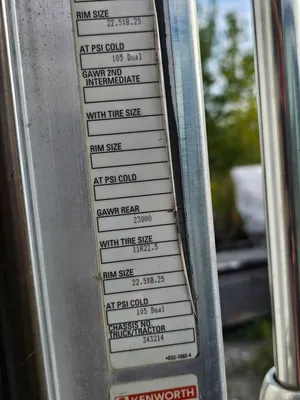 RIM SIZE
22.5X8.25
AT PSI COLD
105 Dual
GAWR 2ND
INTERMEDIATE
WITH TIRE SIZE
RIM SIZE
AT PSI COLD
GAWR REAR
23000
WITH TIRE SIZE
11R22.5
RIM SIZE
22.5X8.25
AT PSI COLD
105 Dual
CHASSIS NO.
TRUCK/TRACTOR
343214
KENWORTH